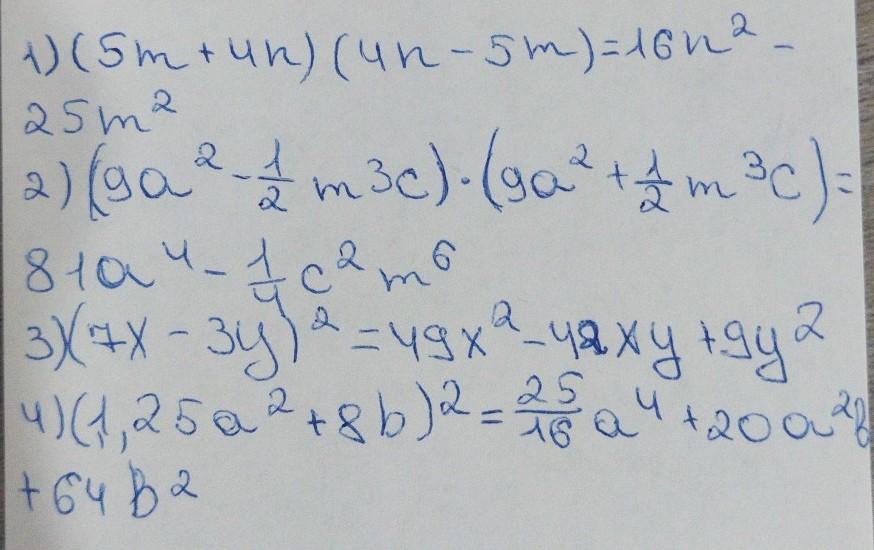 1) (5m + 4n) (4n - 5m) = 16n² -
25m²
2) (9a² - 1/2 m³c) · (9a² + 1/2 m³c) =
81a⁴ - 1/4 c² m⁶
3) (7x - 3y)² = 49x² - 42xy + 9y²
4) (1,25a² + 8b)² = 25/16 a⁴ + 20a²b
+ 64b²